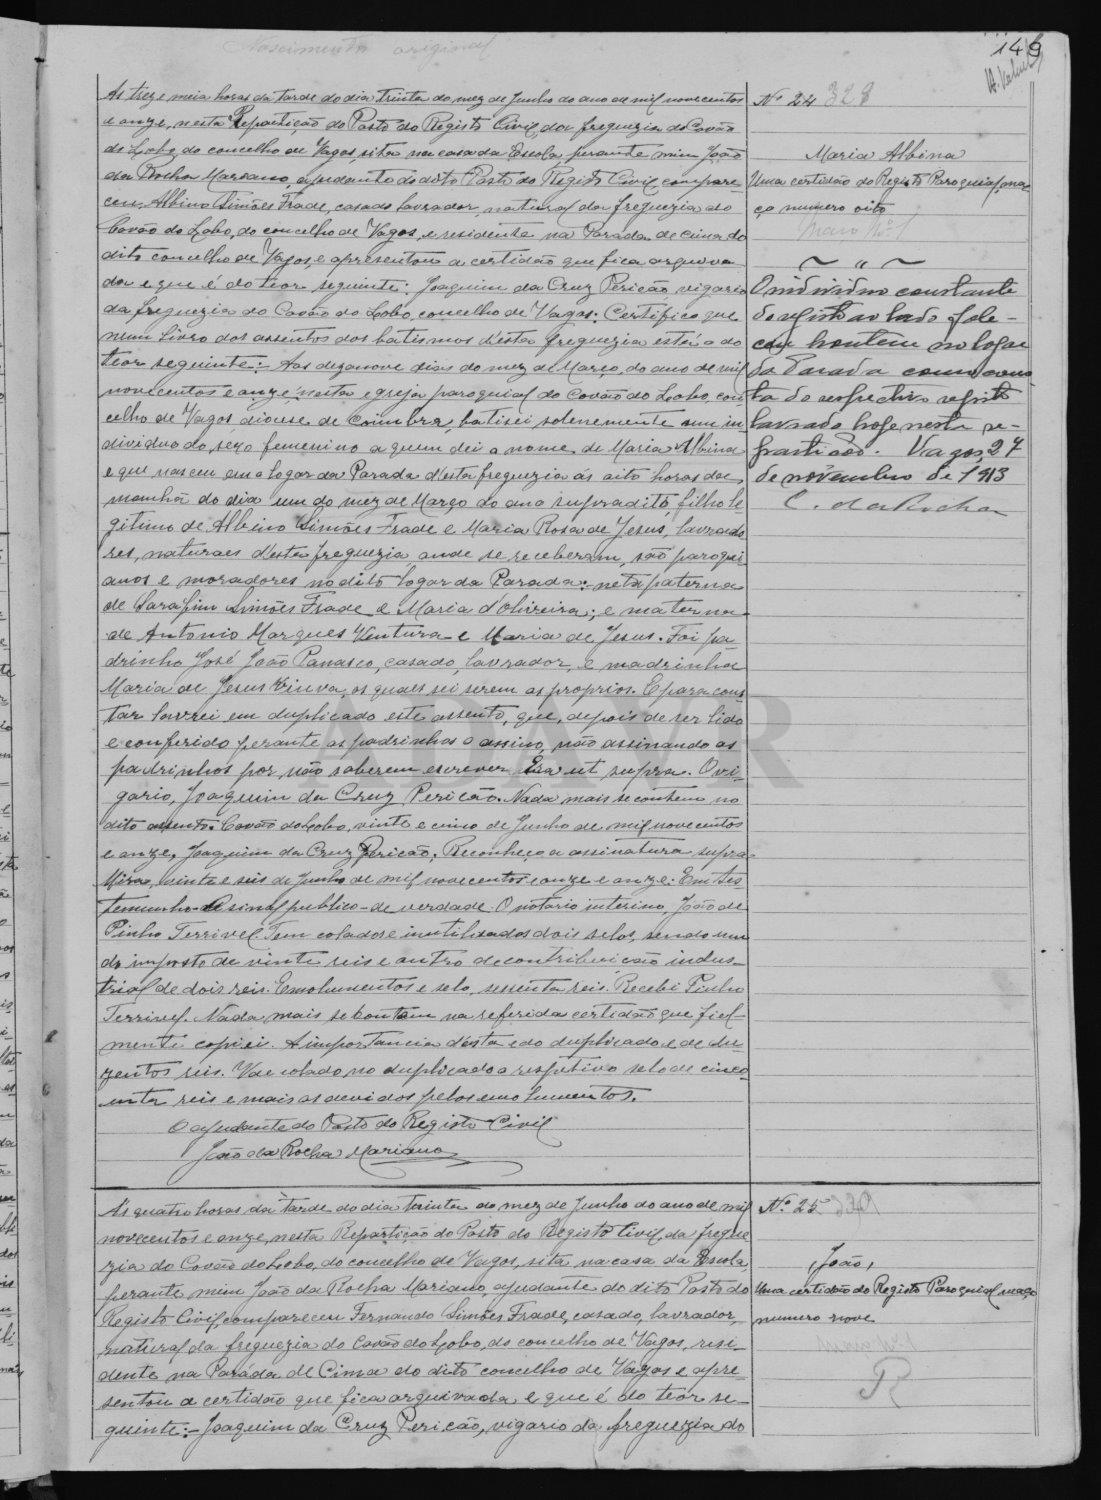 Nascimento original
149
As trez e meia horas da tarde do dia trinta do mez de Junho do ano de mil novecentos
e onze, nesta Repartição do Posto do Registo Civil, da freguezia do Covão
do Lobo, do concelho de Vagos, sita na casa da Escola, perante mim João
da Rocha Mariano, ajudante do dito Posto do Registo Civil, compare
ceu, Albino Simões Frade, casado, lavrador, natural da freguezia do
Covão do Lobo, do concelho de Vagos, e residente na Parada de Cima do
dito concelho de Vagos, e apresentou a certidão que fica arquiva
da e que é do teor seguinte: Joaquim da Cruz Pericão, vigario
da freguezia do Covão do Lobo, concelho de Vagos: Certifico que
num livro dos assentos dos batismos d'esta freguezia está o do
teor seguinte: Aos dezanove dias do mez de Março, do ano de mil
novecentos e onze, nesta egreja paroquial do Covão do Lobo, con
celho de Vagos, diocese de Coimbra, batisei solenemente um in
dividuo do sexo femenino a quem dei o nome de Maria Albina
e que nasceu em o logar da Parada d'esta freguezia ás oito horas da
manhã do dia um do mez de Março do ano supradito, filho le
gitimo de Albino Simões Frade e Maria Rosa de Jesus, lavrado
res, naturaes d'esta freguezia, onde se receberam, são paroqui
anos e moradores no dito logar da Parada: neta paterna
de Sarafim Simões Frade e Maria d'Oliveira; e materna
de Antonio Marques Ventura e Maria de Jesus. Foi pa-
drinho José João Panasco, casado, lavrador, e madrinha
Maria de Jesus Viuva, os quaes sei serem os proprios. E para cons
tar lavrei em duplicado este assento, que, depois de ser lido
e conferido perante os padrinhos o assino, não assinando os
padrinhos por não saberem escrever. Era ut supra. O vi-
gario, Joaquim da Cruz Pericão. Nada mais se contem no
dito assento. Covão do Lobo, vinte e cinco de Junho de mil novecentos
e onze. Joaquim da Cruz Pericão. Reconheço a assinatura supra
Mira, vinte e seis de Junho de mil novecentos e onze e onze: Em tes-
temunho o sinal publico de verdade. O notario interino, João de
Pinho Terrivel. Tem colados e inutilisados dois selos, sendo um
do imposto de vinte reis e outro de contribuição indus-
trial de dois reis. Emolumentos e selo, sessenta reis. Recebi Pinho
Terrivel. Nada mais se contem na referida certidão que fiel-
mente copiei. A importancia d'esta e do duplicado e de du-
zentos reis. Vae colado no duplicado o respetivo selo de cinco-
enta reis e mais os devidos pelos emolumentos.
O ajudante do Posto do Registo Civil
João da Rocha Mariano
Nº 24 328
Maria Albina
Uma certidão do Registo Paroquial ma-
ço numero oito
Maço Nº 1
~ " ~
O individuo constante
do registo ao lado fale-
ceu hontem no logar
da Parada como cons
ta do respectivo registo
lavrado hoje nesta re-
partição. Vagos, 27
de novembro de 1913
C. da Rocha
A's quatro horas da tarde do dia trinta do mez de Junho do ano de mil
novecentos e onze, nesta Repartição do Posto do Registo Civil, da fregue
zia do Covão do Lobo, do concelho de Vagos, sita na casa da Escola,
perante mim João da Rocha Mariano, ajudante do dito Posto do
Registo Civil, compareceu Fernando Simões Frade, casado, lavrador,
natural da freguezia do Covão do Lobo, do concelho de Vagos, resi-
dente na Parada de Cima do dito concelho de Vagos e apre-
sentou a certidão que fica arquivada e que é do teor se-
guinte: - Joaquim da Cruz Pericão, vigario da freguezia do
Nº 25
João,
Uma certidão do Registo Paroquial maço
numero nove